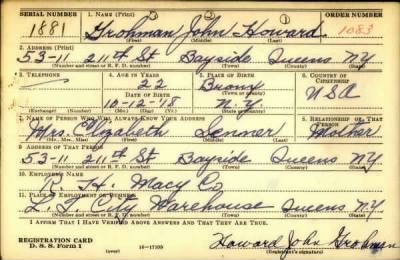 SERIAL NUMBER 1. NAME (Print) ORDER NUMBER
1881 Grohman John Howard 1083
(First) (Middle) (Last)
2. ADDRESS (Print)
53-11 211th St Bayside Queens N.Y.
(Number and street or R. F. D. number) (Town) (County) (State)
3. TELEPHONE 4. AGE IN YEARS 5. PLACE OF BIRTH 6. COUNTRY OF CITIZENSHIP
22 Bronx
DATE OF BIRTH (Town or county)
10-12-'18 N.Y. USA
(Exchange) (Number) (Mo.) (Day) (Yr.) (State or country)
7. NAME OF PERSON WHO WILL ALWAYS KNOW YOUR ADDRESS 8. RELATIONSHIP OF THAT PERSON
Mrs. Elizabeth Senner Mother
(Mr., Mrs., Miss) (First) (Middle) (Last)
9. ADDRESS OF THAT PERSON
53-11 211th St Bayside Queens N.Y.
(Number and street or R. F. D. number) (Town) (County) (State)
10. EMPLOYER'S NAME
R. H. Macy Co
11. PLACE OF EMPLOYMENT OR BUSINESS
L. I. City Warehouse Queens N.Y.
(Number and street or R. F. D. number) (Town) (County) (State)
I AFFIRM THAT I HAVE VERIFIED ABOVE ANSWERS AND THAT THEY ARE TRUE.
REGISTRATION CARD
D. S. S. Form 1 (over) 16-17105 Howard John Grohman
(Registrant's signature)